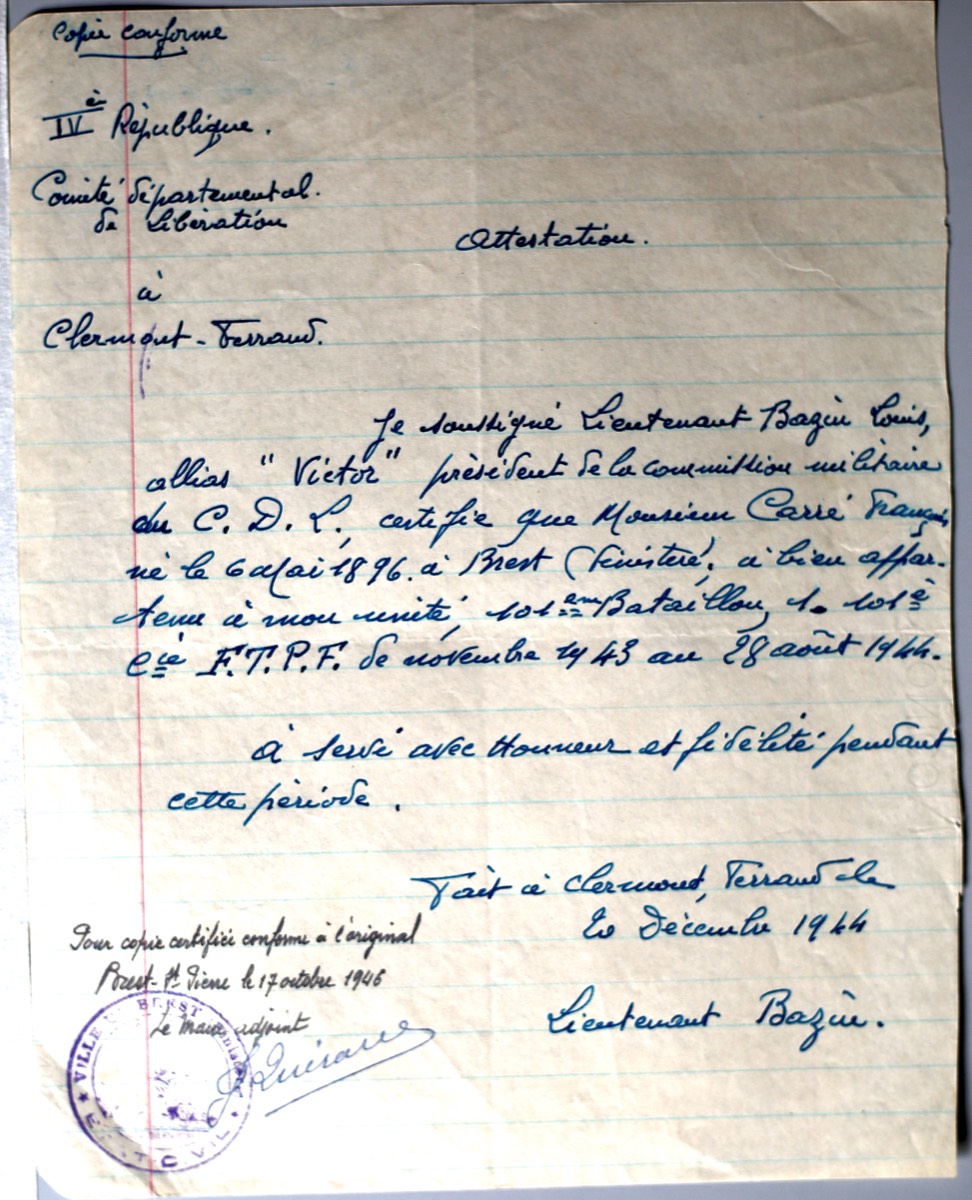 Copie conforme
IVè République.
Comité départemental.
de Libération
Attestation.
à
Clermont-Ferrand.
Je soussigné Lieutenant Bazin Louis,
allias "Victor" président de la commission militaire
du C. D. L., certifie que Monsieur Carré François
né le 6 Mai 1896. à Brest (Finistère, à bien appar-
tenu à mon unité, 101ème Bataillon, 101è
Cie F.T.P.F. de novembre 1943 au 28 août 1944.
à servi avec Honneur et fidélité pendant
cette période.
Fait à Clermont, Ferrand le
20 Décembre 1944
Pour copie certifiée conforme à l'original
Brest-St Pierre le 17 octobre 1946
Le Maire adjoint
Lieutenant Bazin.
VILLE BREST
ETAT CIVIL